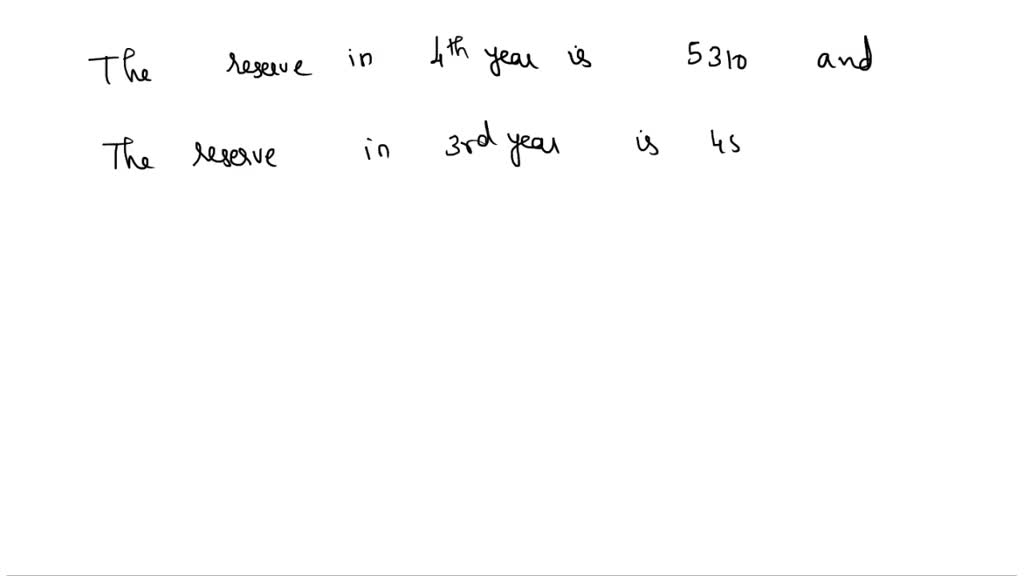 The reserve in 4th year is 5310 and
The reserve in 3rd year is 45